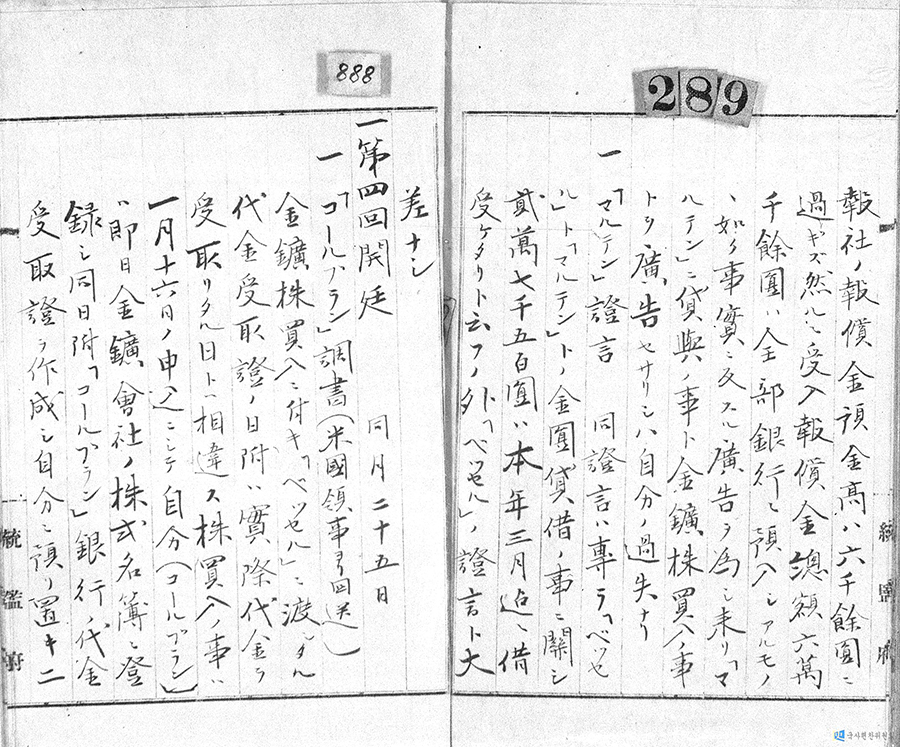 289
報社ノ報償金預金高ハ六千餘圓ニ
過ギズ然ルニ受入報償金總額六萬
千餘圓ハ全部銀行ニ預入シアルモノ
ヽ如ク事實ニ反スル廣告ヲ為シ来リ「マ
ルテン」ニ貸與ノ事ト金鑛株買入ノ事
トヲ廣告セサリシハ自分ノ過失ナリ
一「マルテン」證言 同證言ハ專ラ「ベッセ
ル」ト「マルテン」トノ金圓貸借ノ事ニ關シ
貳萬七千五百圓ハ本年三月迠ニ借
受ケタリト云フノ外「ベッセル」ノ證言ト大
888
差ナシ
一第四回開廷 同月二十五日
一「コールブラン」調書(米國領事ヨリ回送)
金鑛株買入ニ付キ「ベッセル」ニ渡シタル
代金受取證ノ日附ハ實際代金ヲ
受取リタル日ト相違ス株買入ノ事ハ
一月十六日ノ申込ニシテ自分(コールブラン)
ハ即日金鑛會社ノ株式名簿ニ登
録シ同日附「コールブラン」銀行ノ代金
受取證ヲ作成シ自分ニ預リ置キ二
統監府
統監府
국사편찬위원회